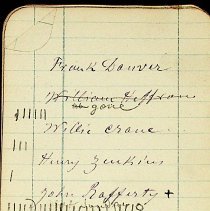 Frank Danver
William Heffron
gone
Willie Crane
Henry Jenkins
John Rafferty +